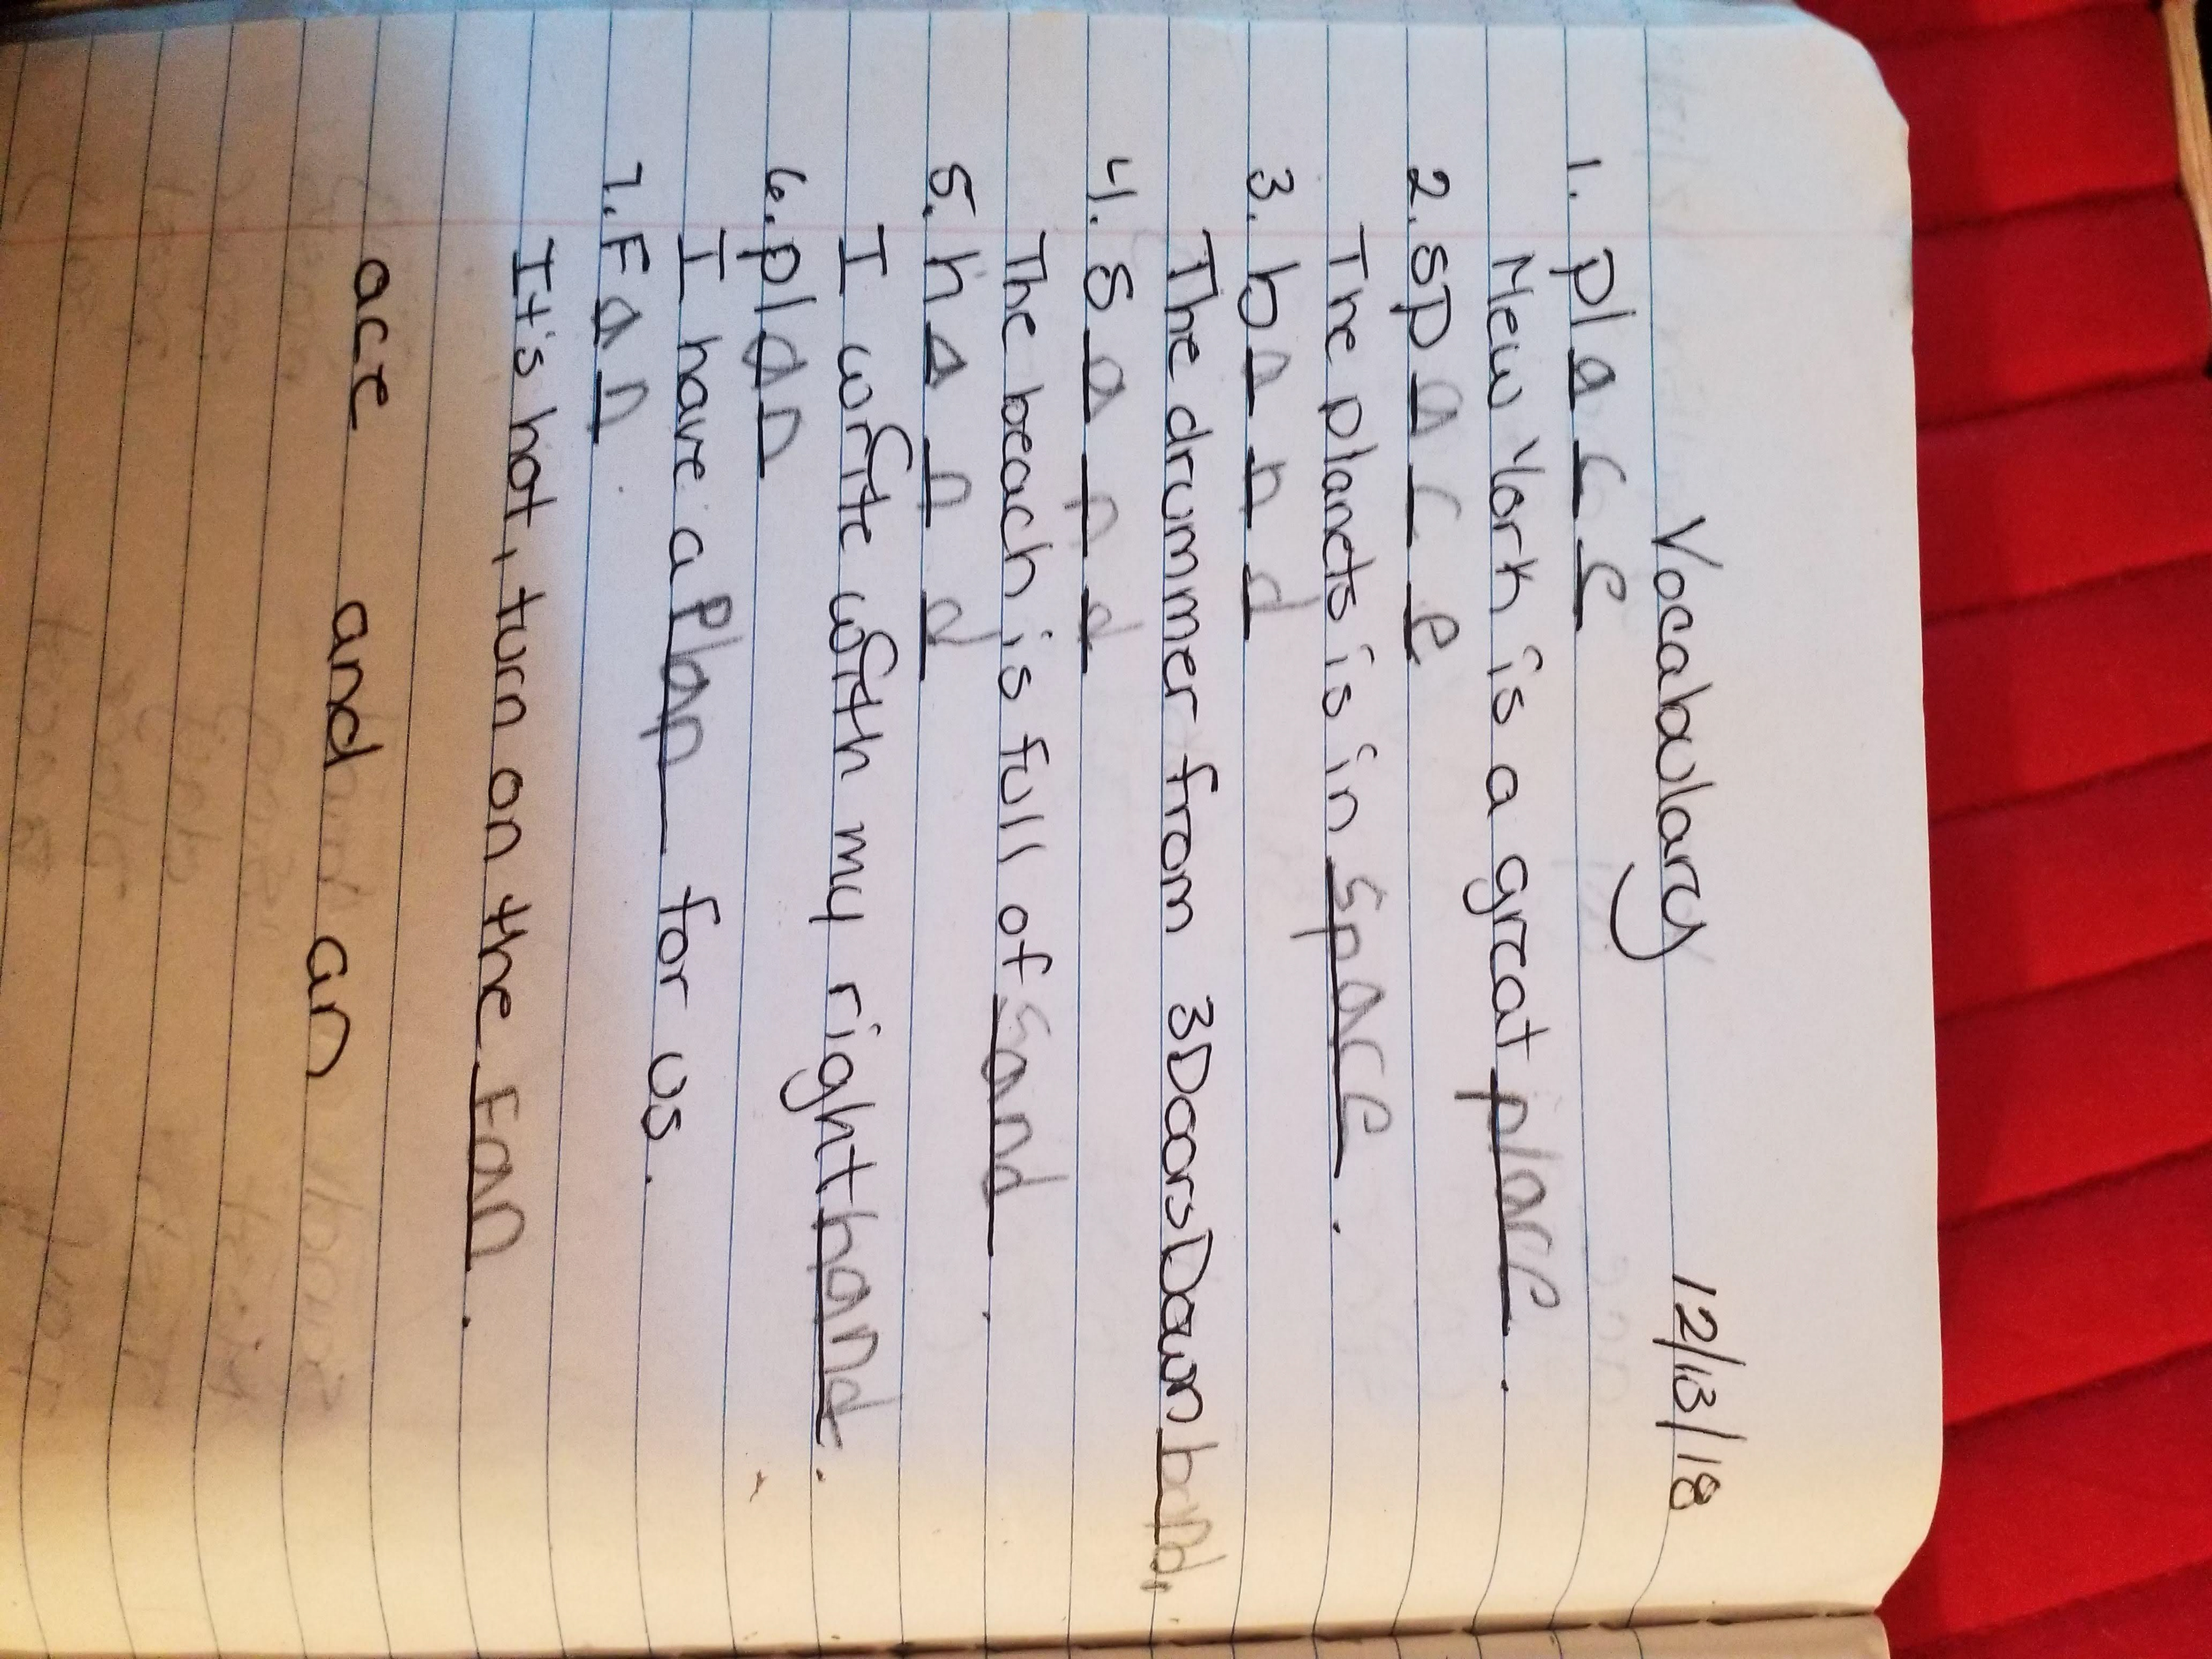 Vocabulary 12/13/18
1. place
New York is a great place.
2. space
The planets is in space.
3. band
The drummer from 3 Doors Down band.
4. sand
The beach is full of sand.
5. hand
I write with my right hand.
6. plan
I have a Plan for us.
7. Fan
It's hot, turn on the Fan.
ace and an